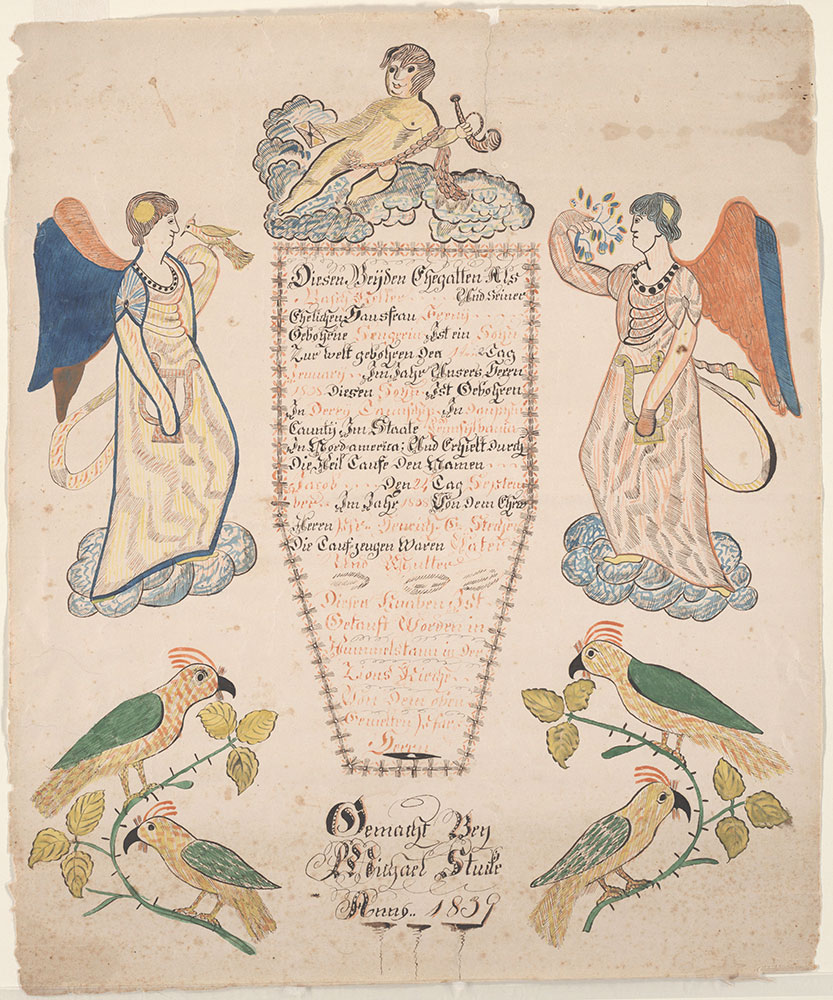 Diesen Beijden Ehegatten Als
Und Seiner
Ehelichen Hausfrau
Gebohrne Ist ein Sohn
Zur Welt gebohren den Tag
Jennuary Im Jahr Unsers Herrn
1838 Diesen Sohn Ist Gebohren
In Derry Taunschip In Dauphin
Countij Im Staate Pennsylvania
In Nordamerica; Und Erhielt durch
Die Heil Taufe Den Namen
Jacob Den 24 Tag Septem
ber Im Jahr 1838 Von dem Ehrw
Herrn
Die Taufzeugen Waren Vater
Und Mutter
Diesen Knaben Ist
Getauft Worden in
Hummelstaun in der
Zions Kirche
Von dem oben
Herrn
Gemacht Bey
Michael
Anno.. 1839